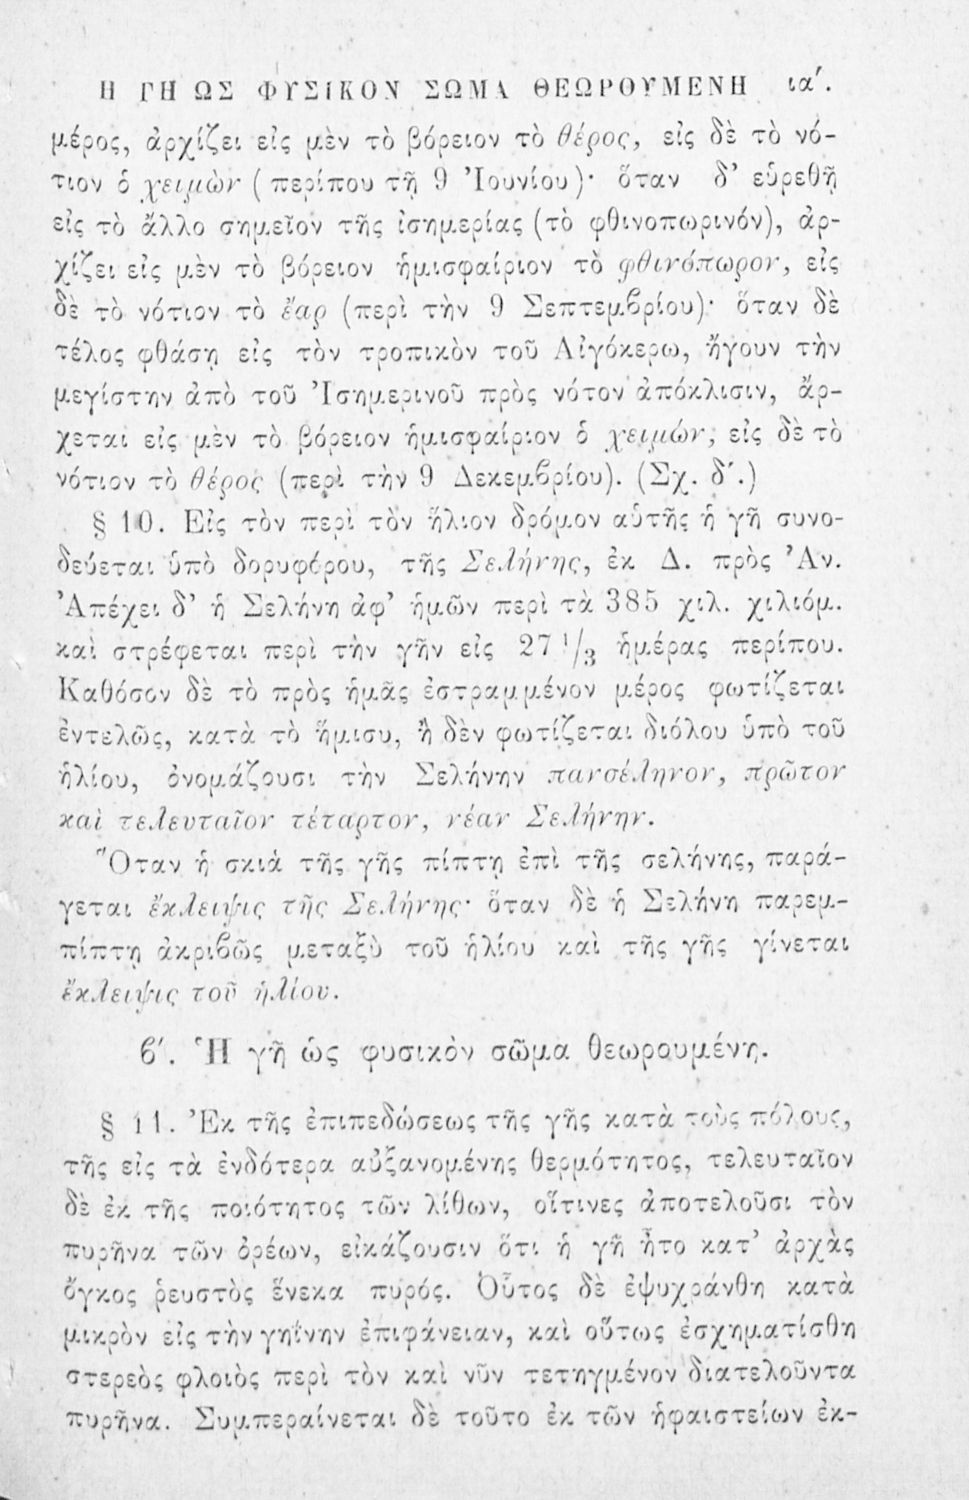 Η ΓΗ ΩΣ ΦΥΣΙΚΟΝ ΣΩΜΑ ΘΕΩΡΟΥΜΕΝΗ ια΄.
μέρος, ἀρχίζει εἰς μὲν τὸ βόρειον τὸ θέρος, εἰς δὲ τὸ νό-
τιον ὁ χειμὼν (περίπου τῇ 9 Ἰουνίου)· ὅταν δ’ εὑρεθῇ
εἰς τὸ ἄλλο σημεῖον τῆς ἰσημερίας (τὸ φθινοπωρινόν), ἀρ-
χίζει εἰς μὲν τὸ βόρειον ἡμισφαίριον τὸ φθινόπωρον, εἰς
δὲ τὸ νότιον τὸ ἔαρ (περὶ τὴν 9 Σεπτεμβρίου)· ὅταν δὲ
τέλος φθάσῃ εἰς τὸν τροπικὸν τοῦ Αἰγόκερω, ἤγουν τὴν
μεγίστην ἀπὸ τοῦ Ἰσημερινοῦ πρὸς νότον ἀπόκλισιν, ἄρ-
χεται εἰς μὲν τὸ βόρειον ἡμισφαίριον ὁ χειμών, εἰς δὲ τὸ
νότιον τὸ θέρος (περὶ τὴν 9 Δεκεμβρίου). (Σχ. δ΄.)
§ 10. Εἰς τὸν περὶ τὸν ἥλιον δρόμον αὑτῆς ἡ γῆ συνο-
δεύεται ὑπὸ δορυφόρου, τῆς Σελήνης, ἐκ Δ. πρὸς Ἀν.
Ἀπέχει δ’ ἡ Σελήνη ἀφ’ ἡμῶν περὶ τὰ 385 χιλ. χιλιόμ.
καὶ στρέφεται περὶ τὴν γῆν εἰς 27 1/3 ἡμέρας περίπου.
Καθόσον δὲ τὸ πρὸς ἡμᾶς ἐστραμμένον μέρος φωτίζεται
ἐντελῶς, κατὰ τὸ ἥμισυ, ἢ δὲν φωτίζεται διόλου ὑπὸ τοῦ
ἡλίου, ὀνομάζουσι τὴν Σελήνην πανσέληνον, πρῶτον
καὶ τελευταῖον τέταρτον, νέαν Σελήνην.
Ὅταν ἡ σκιὰ τῆς γῆς πίπτῃ ἐπὶ τῆς σελήνης, παρά-
γεται ἔκλειψις τῆς Σελήνης· ὅταν δὲ ἡ Σελήνη παρεμ-
πίπτῃ ἀκριβῶς μεταξὺ τοῦ ἡλίου καὶ τῆς γῆς γίνεται
ἔκλειψις τοῦ ἡλίου.
β΄. Ἡ γῆ ὡς φυσικὸν σῶμα θεωρουμένη.
§ 11. Ἐκ τῆς ἐπιπεδώσεως τῆς γῆς κατὰ τοὺς πόλους,
τῆς εἰς τὰ ἐνδότερα αὐξανομένης θερμότητος, τελευταῖον
δὲ ἐκ τῆς ποιότητος τῶν λίθων, οἵτινες ἀποτελοῦσι τὸν
πυρῆνα τῶν ὀρέων, εἰκάζουσιν ὅτι ἡ γῆ ἦτο κατ’ ἀρχὰς
ὄγκος ῥευστὸς ἕνεκα πυρός. Οὗτος δὲ ἐψυχράνθη κατὰ
μικρὸν εἰς τὴν γηΐνην ἐπιφάνειαν, καὶ οὕτως ἐσχηματίσθη
στερεὸς φλοιὸς περὶ τὸν καὶ νῦν τετηγμένον διατελοῦντα
πυρῆνα. Συμπεραίνεται δὲ τοῦτο ἐκ τῶν ἡφαιστείων ἐκ-